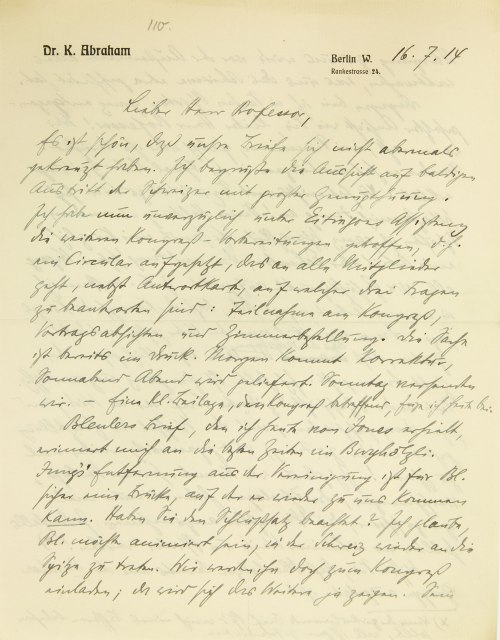 110.
Dr. K. Abraham
Berlin W.
Rankestrasse 24.
16.7.14
Lieber Herr Professor,
Es ist schön, daß unsre Briefe sich nicht abermals
gekreuzt haben. Ich begrüße die Aussicht auf baldigen
Austritt der Schweizer mit großer Genugthuung.
Ich habe nun unverzüglich unter Eitingons Assistenz
die weiteren Kongreß-Vorbereitungen getroffen, d. h.
ein Circular aufgesetzt, das an alle Mitglieder
geht, nebst Antwortkarte, auf welcher drei Fragen
zu beantworten sind: Teilnahme am Kongreß,
Vortragsabsichten und Zimmerbestellung. Die Sache
ist bereits im Druck. Morgen kommt Korrektur,
Sonnabend Abend wird geliefert. Sonntag versenden
wir. – Eine kl. Beilage, den Kongreß betreffend, füge ich heute bei.
Bleulers Brief, den ich heute von Jones erhielt,
erinnert mich an die besten Zeiten im Burghölzli.
Jung's Entfernung aus der Vereinigung ist für Bl.
sicher eine Brücke, auf der er wieder zu uns kommen
kann. Haben Sie den Schlußsatz beachtet? Ich glaube,
Bl. möchte animiert sein, in der Schweiz wieder an die
Spitze zu treten. Wir werden ihn doch zum Kongreß
einladen; da wird sich das Weitere ja zeigen. Sein